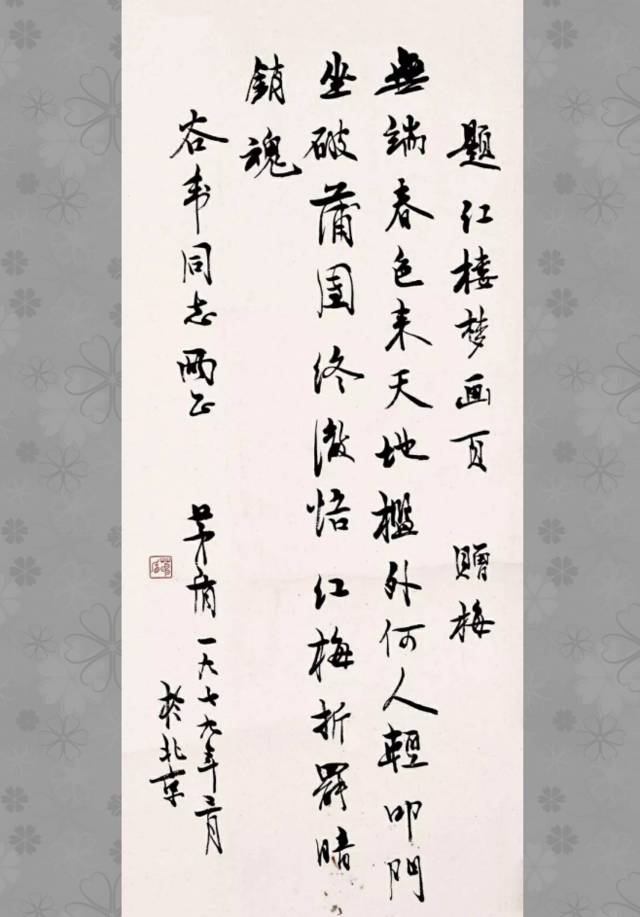 题红楼梦画页 赠梅
無端春色来天地檻外何人輕叩門
坐破蒲團终澈悟红梅折罷暗
銷魂
谷韦同志兩正
茅盾一九七九年月
於北京